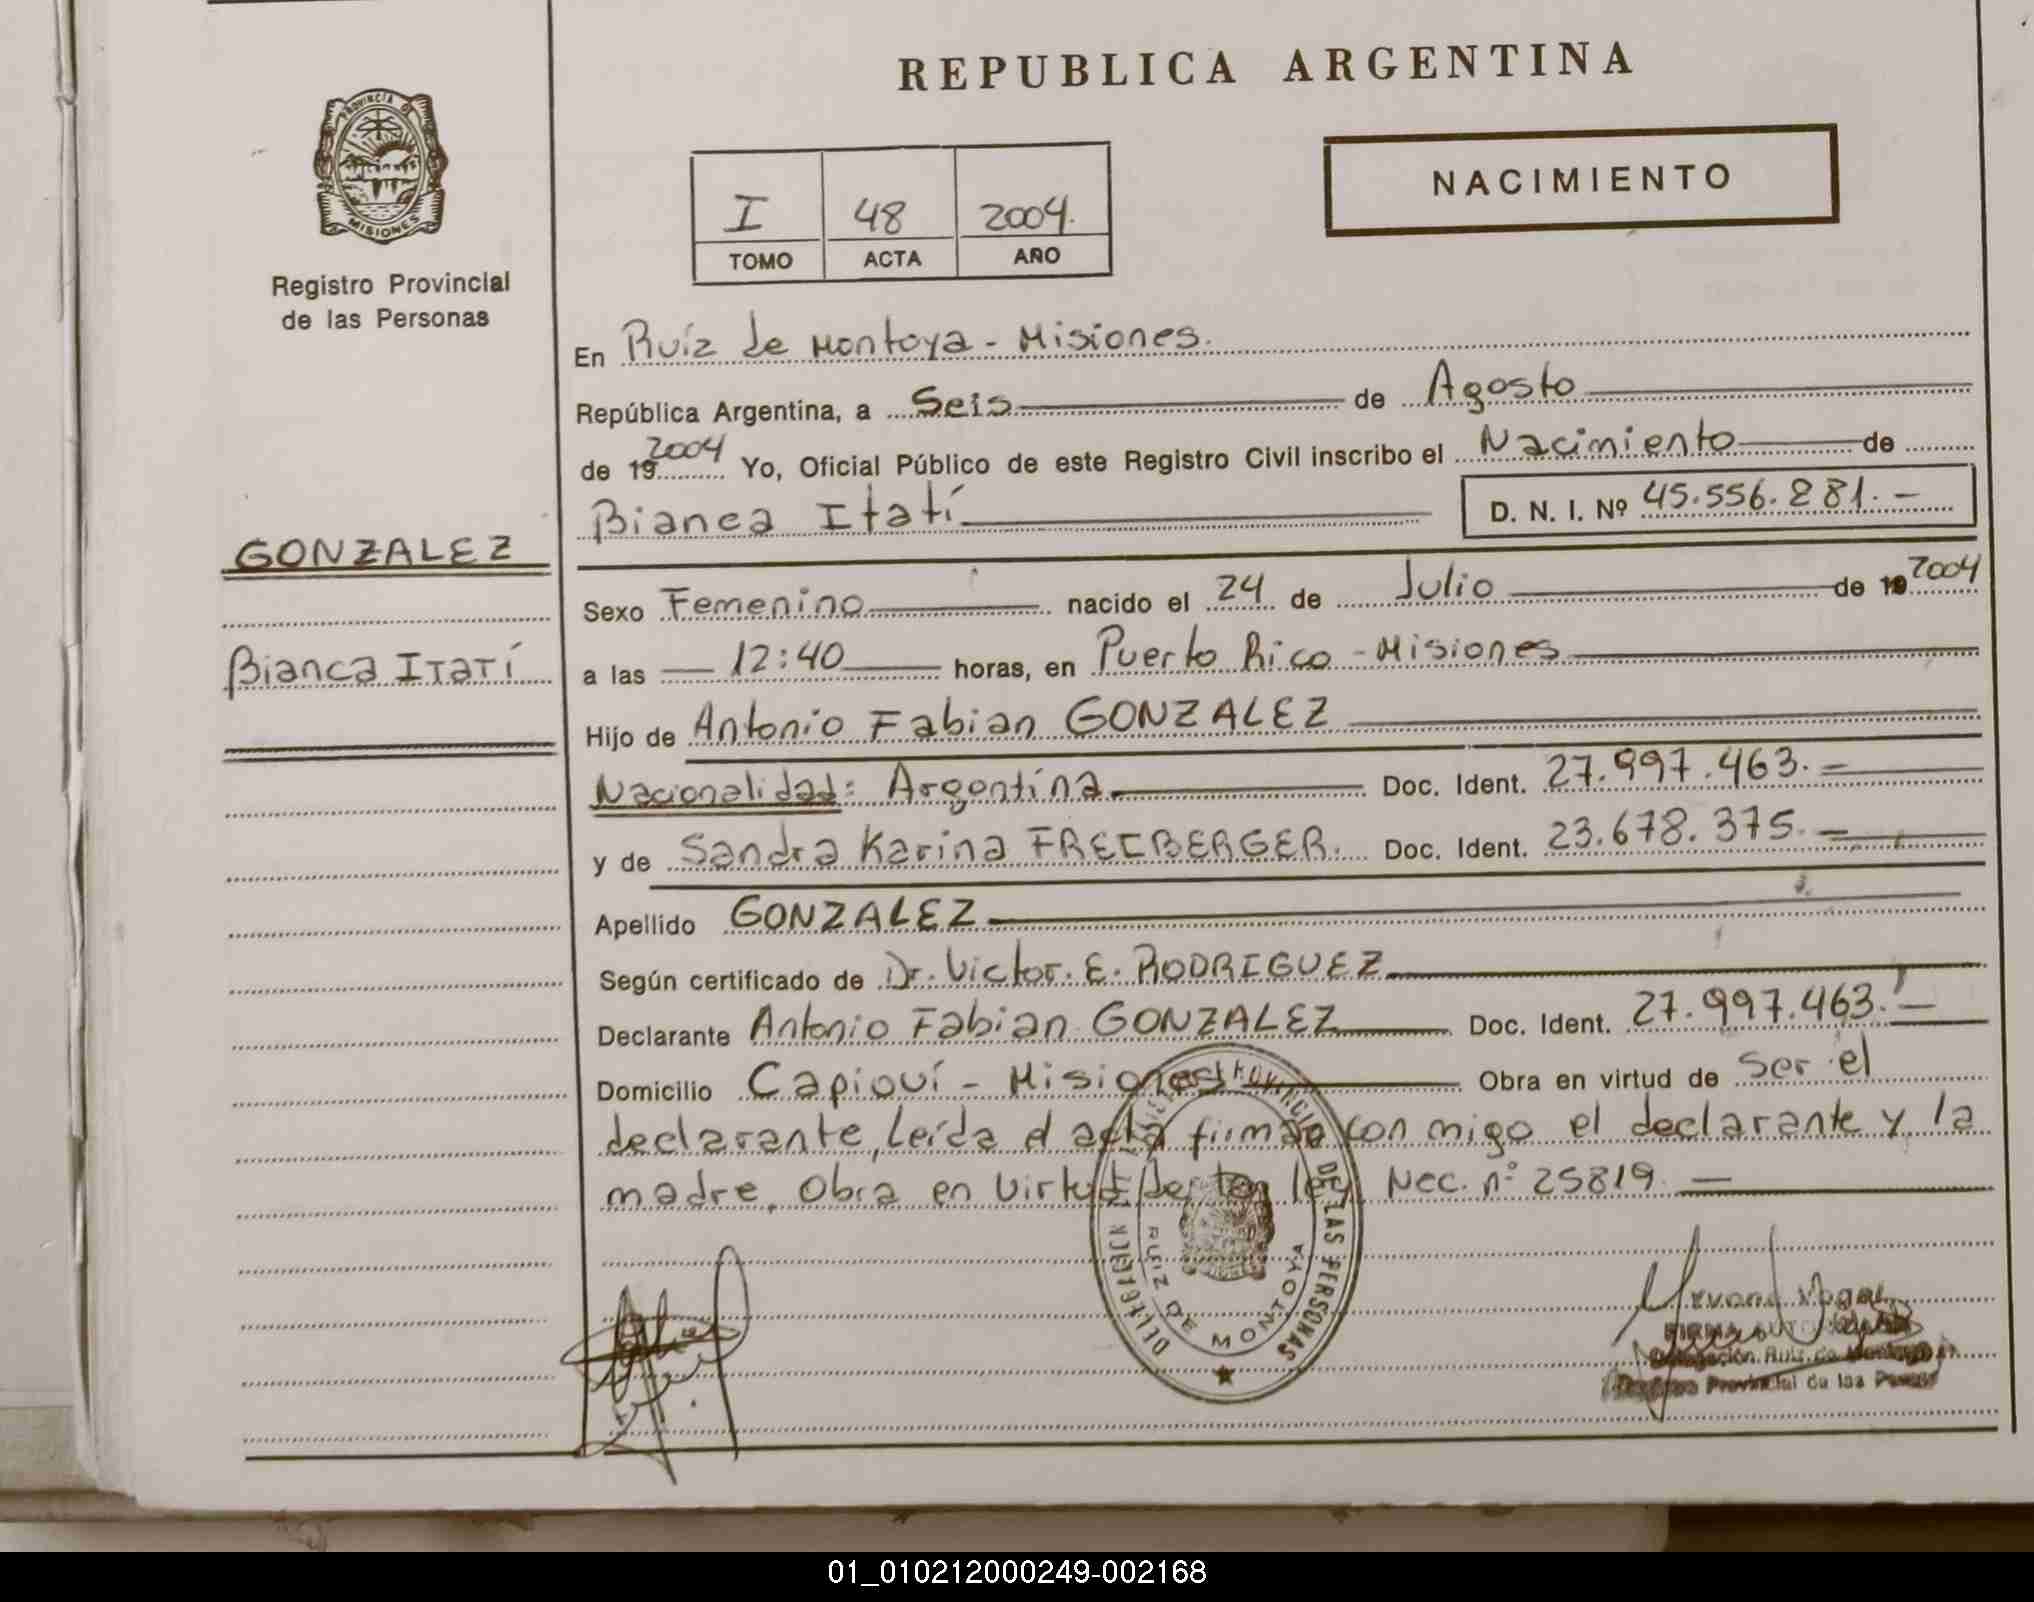 REPUBLICA ARGENTINA
PROVINCIA DE
MISIONES
Registro Provincial
de las Personas
NACIMIENTO
I 48 2004.
TOMO ACTA AÑO
En Ruíz de Montoya - Misiones.
República Argentina, a Seis de Agosto
de 19 2004 Yo, Oficial Público de este Registro Civil inscribo el Nacimiento de
Bianca Itatí
D. N. I. Nº 45.556.281.-
GONZALEZ
Bianca Itatí
Sexo Femenino nacido el 24 de Julio de 19 2004
a las 12:40 horas, en Puerto Rico - Misiones
Hijo de Antonio Fabian GONZALEZ
Nacionalidad: Argentina Doc. Ident. 27.997.463.-
y de Sandra Karina FREIBERGER. Doc. Ident. 23.678.375.-
Apellido GONZALEZ
Según certificado de Dr. Victor. E. RODRIGUEZ
Declarante Antonio Fabian GONZALEZ Doc. Ident. 27.997.463.-
Domicilio Capioví - Misiones Obra en virtud de ser el
declarante, Leída el acta firman con migo el declarante y la
madre. Obra en Virtud de ley Nec. nº 25819.-
PROVINCIAL DE LAS PERSONAS
DELEGACION
RUIZ DE MONTOYA
FIRMA
Delegación Ruiz de Montoya
Provincial de las
01_010212000249-002168